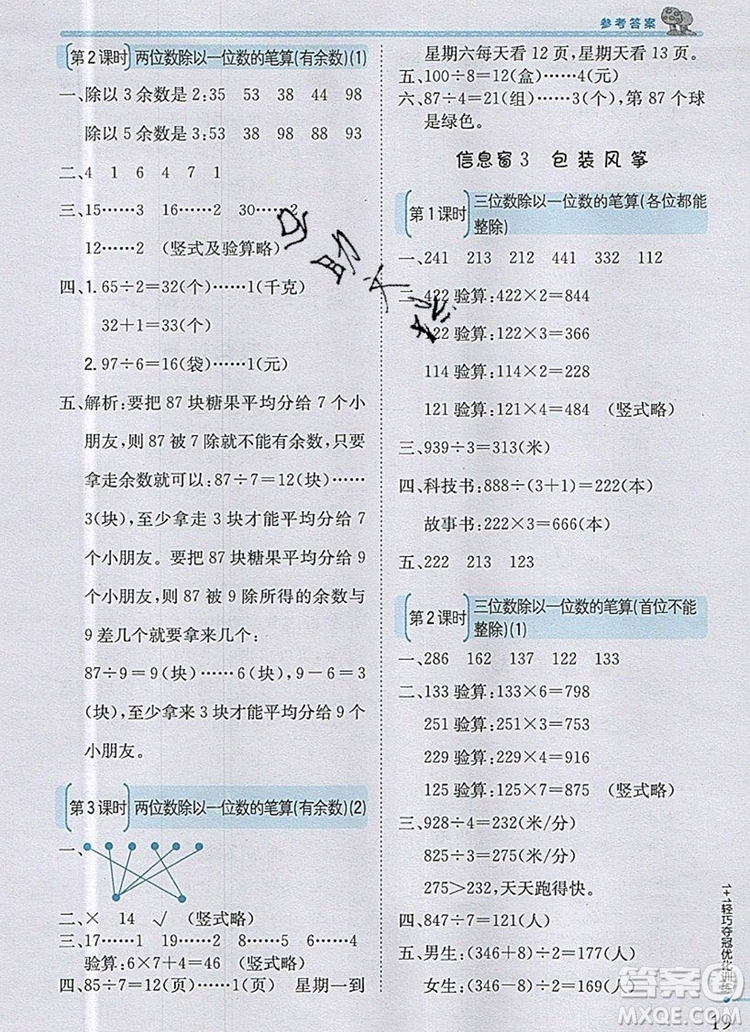 参考答案
第2课时 两位数除以一位数的笔算(有余数)(1)
一、除以 3 余数是 2:35 53 38 44 98
除以 5 余数是 3:53 38 98 88 93
二、4 1 6 4 7 1
三、15……3 16……2 30……2
12……2 (竖式及验算略)
四、1. 65÷2=32(个)……1(千克)
32+1=33(个)
2. 97÷6=16(袋)……1(元)
五、解析:要把 87 块糖果平均分给 7 个小
朋友,87 被 7 除就不能有余数,只要
拿走余数就可以:87÷7=12(块)……
3(块),至少拿走 3 块才能平均分给 7
个小朋友。要把 87 块糖果平均分给 9
个小朋友,则 87 被 9 除所得的余数与
9 差几个就要再拿来几个:
87÷9=9(块)……6(块),9-6=3
(块),至少拿来 3 块才能平均分给 9 个
小朋友。
第3课时 两位数除以一位数的笔算(有余数)(2)
一、
二、× 14 √ (竖式略)
三、17……1 19……2 8……8
验算:6×7+4=46 (竖式略)
四、85÷7=12(页)……1(页) 星期一到
星期六每天看 12 页,星期天看 13 页。
五、100÷8=12(盒)……4(元)
六、87÷4=21(组)……3(个),第 87 个球
是绿色。
信息窗 3 包装风筝
第1课时 三位数除以一位数的笔算(各位都能
整除)
一、241 213 212 441 332 112
二、422 验算:422×2=844
122 验算:122×3=366
114 验算:114×2=228
121 验算:121×4=484 (竖式略)
三、939÷3=313(米)
四、科技书:888÷(3+1)=222(本)
故事书:222×3=666(本)
五、222 213 123
第2课时 三位数除以一位数的笔算(首位不能
整除)(1)
一、286 162 137 122 133
二、133 验算:133×6=798
251 验算:251×3=753
229 验算:229×4=916
125 验算:125×7=875 (竖式略)
三、928÷4=232(米/分)
825÷3=275(米/分)
275>232,天天跑得快。
四、847÷7=121(人)
五、男生:(346+8)÷2=177(人)
女生:(346-8)÷2=169(人)
1+1轻巧夺冠优化训练
19
答案
MXQE.COM